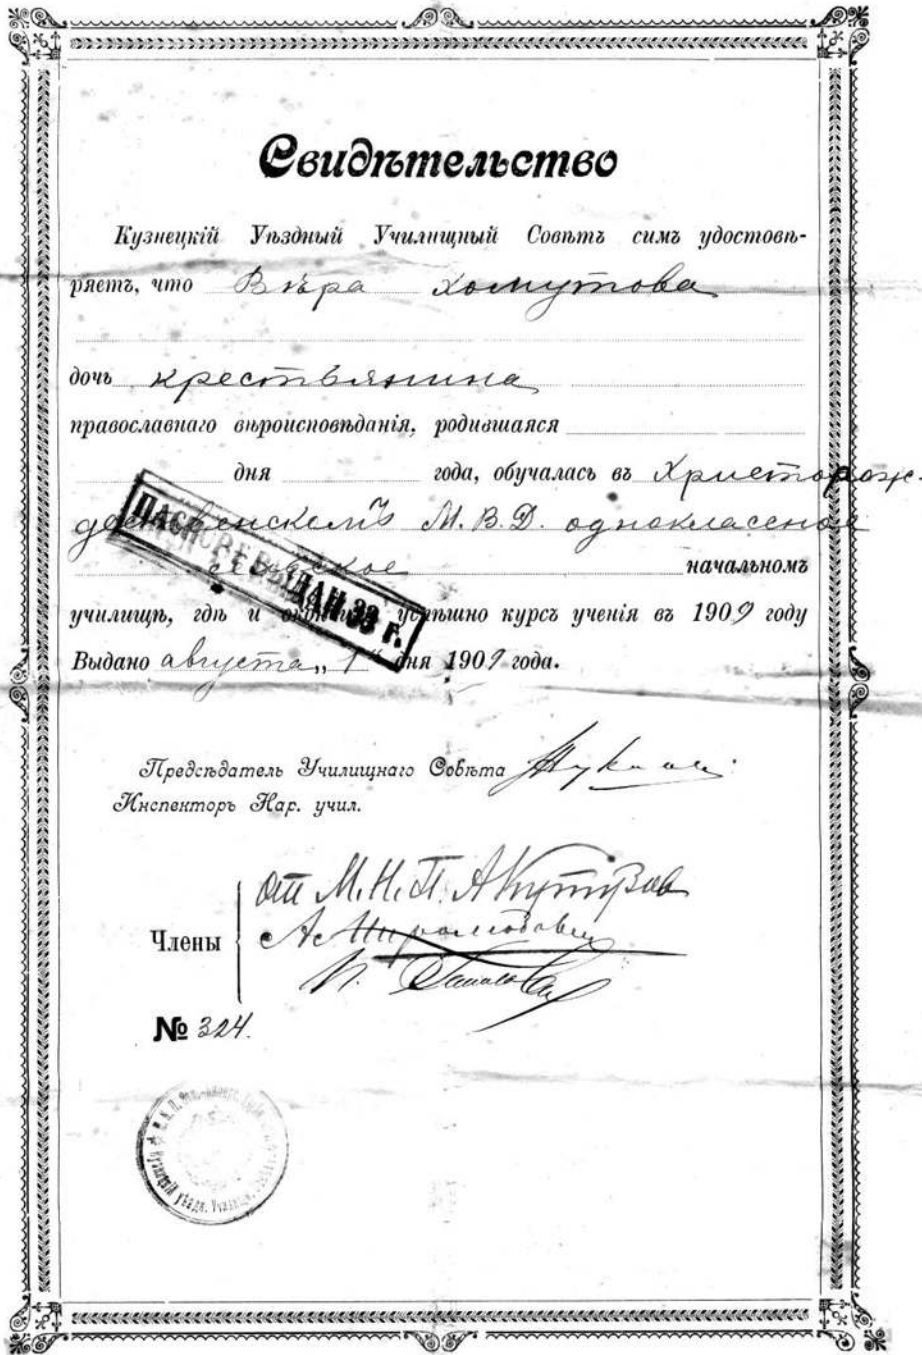 Свидѣтельство
Кузнецкій Уѣздный Училищный Совѣтъ симъ удостовѣ-
ряетъ, что Вѣра Хомутова
дочь крестьянина
православнаго вѣроисповѣданія, родившаяся
дня года, обучалась въ Христорож-
дественскомъ М.В.Д. однокласеное
сельское начальномъ
ПАСПОРТ ВЫДАН 33 г.
училищѣ, гдѣ и успѣшно курсъ ученія въ 1909 году
Выдано августа „1“ дня 1909 года.
Предсѣдатель Училищнаго Совѣта
Инспекторъ Нар. учил.
Члены
от М.Н.П. А
№ 324.
Кузнецкій уѣздн. Училищ.